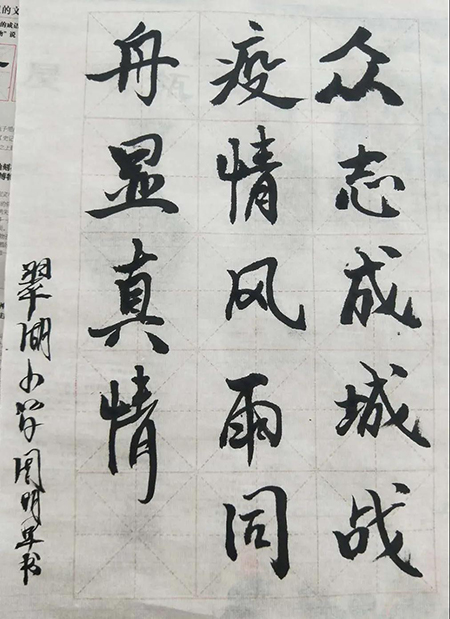 众志成城战
疫情风雨同
舟显真情
翠湖小学周明生书